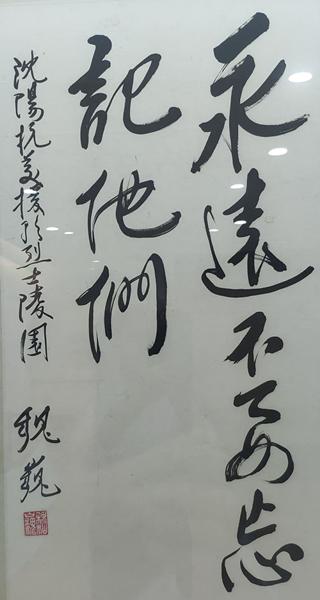 永遠不要忘
記他們
沈陽抗美援朝烈士陵園
魏巍